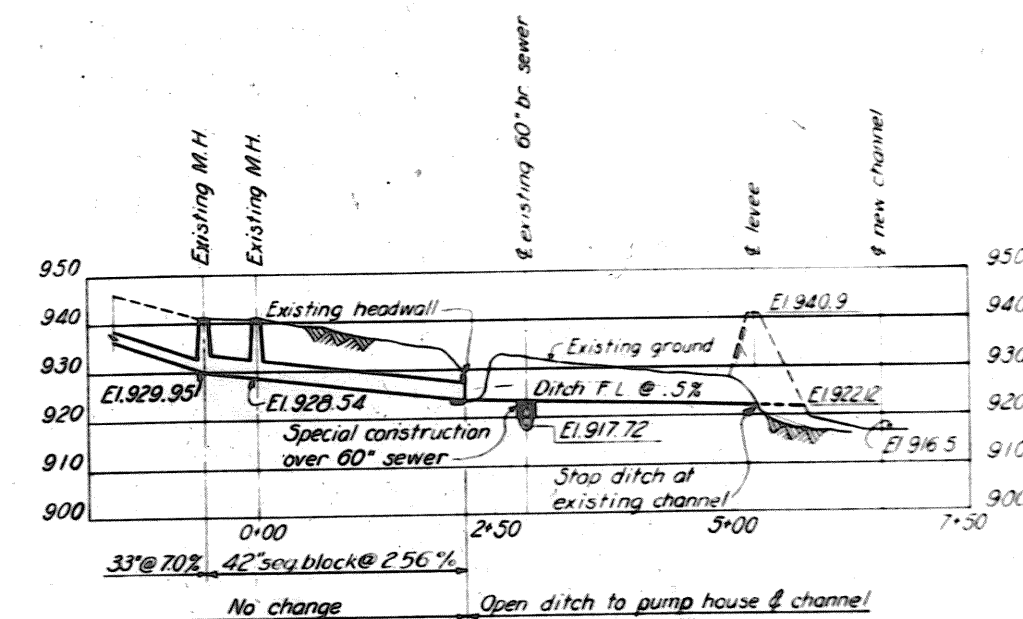 Existing M.H.
Existing M.H.
℄ existing 60" br. sewer
℄ levee
℄ new channel
950
940
930
920
910
900
950
940
930
920
910
900
Existing headwall
El. 940.9
Existing ground
Ditch F.L. @ .5%
El. 929.95
El. 928.54
El. 922.12
Special construction
over 60" sewer
El. 917.72
El. 916.5
Stop ditch at
existing channel
0+00
2+50
5+00
7+50
33"@7.0%
42" seg. block @ 2.56%
No change
Open ditch to pump house & channel